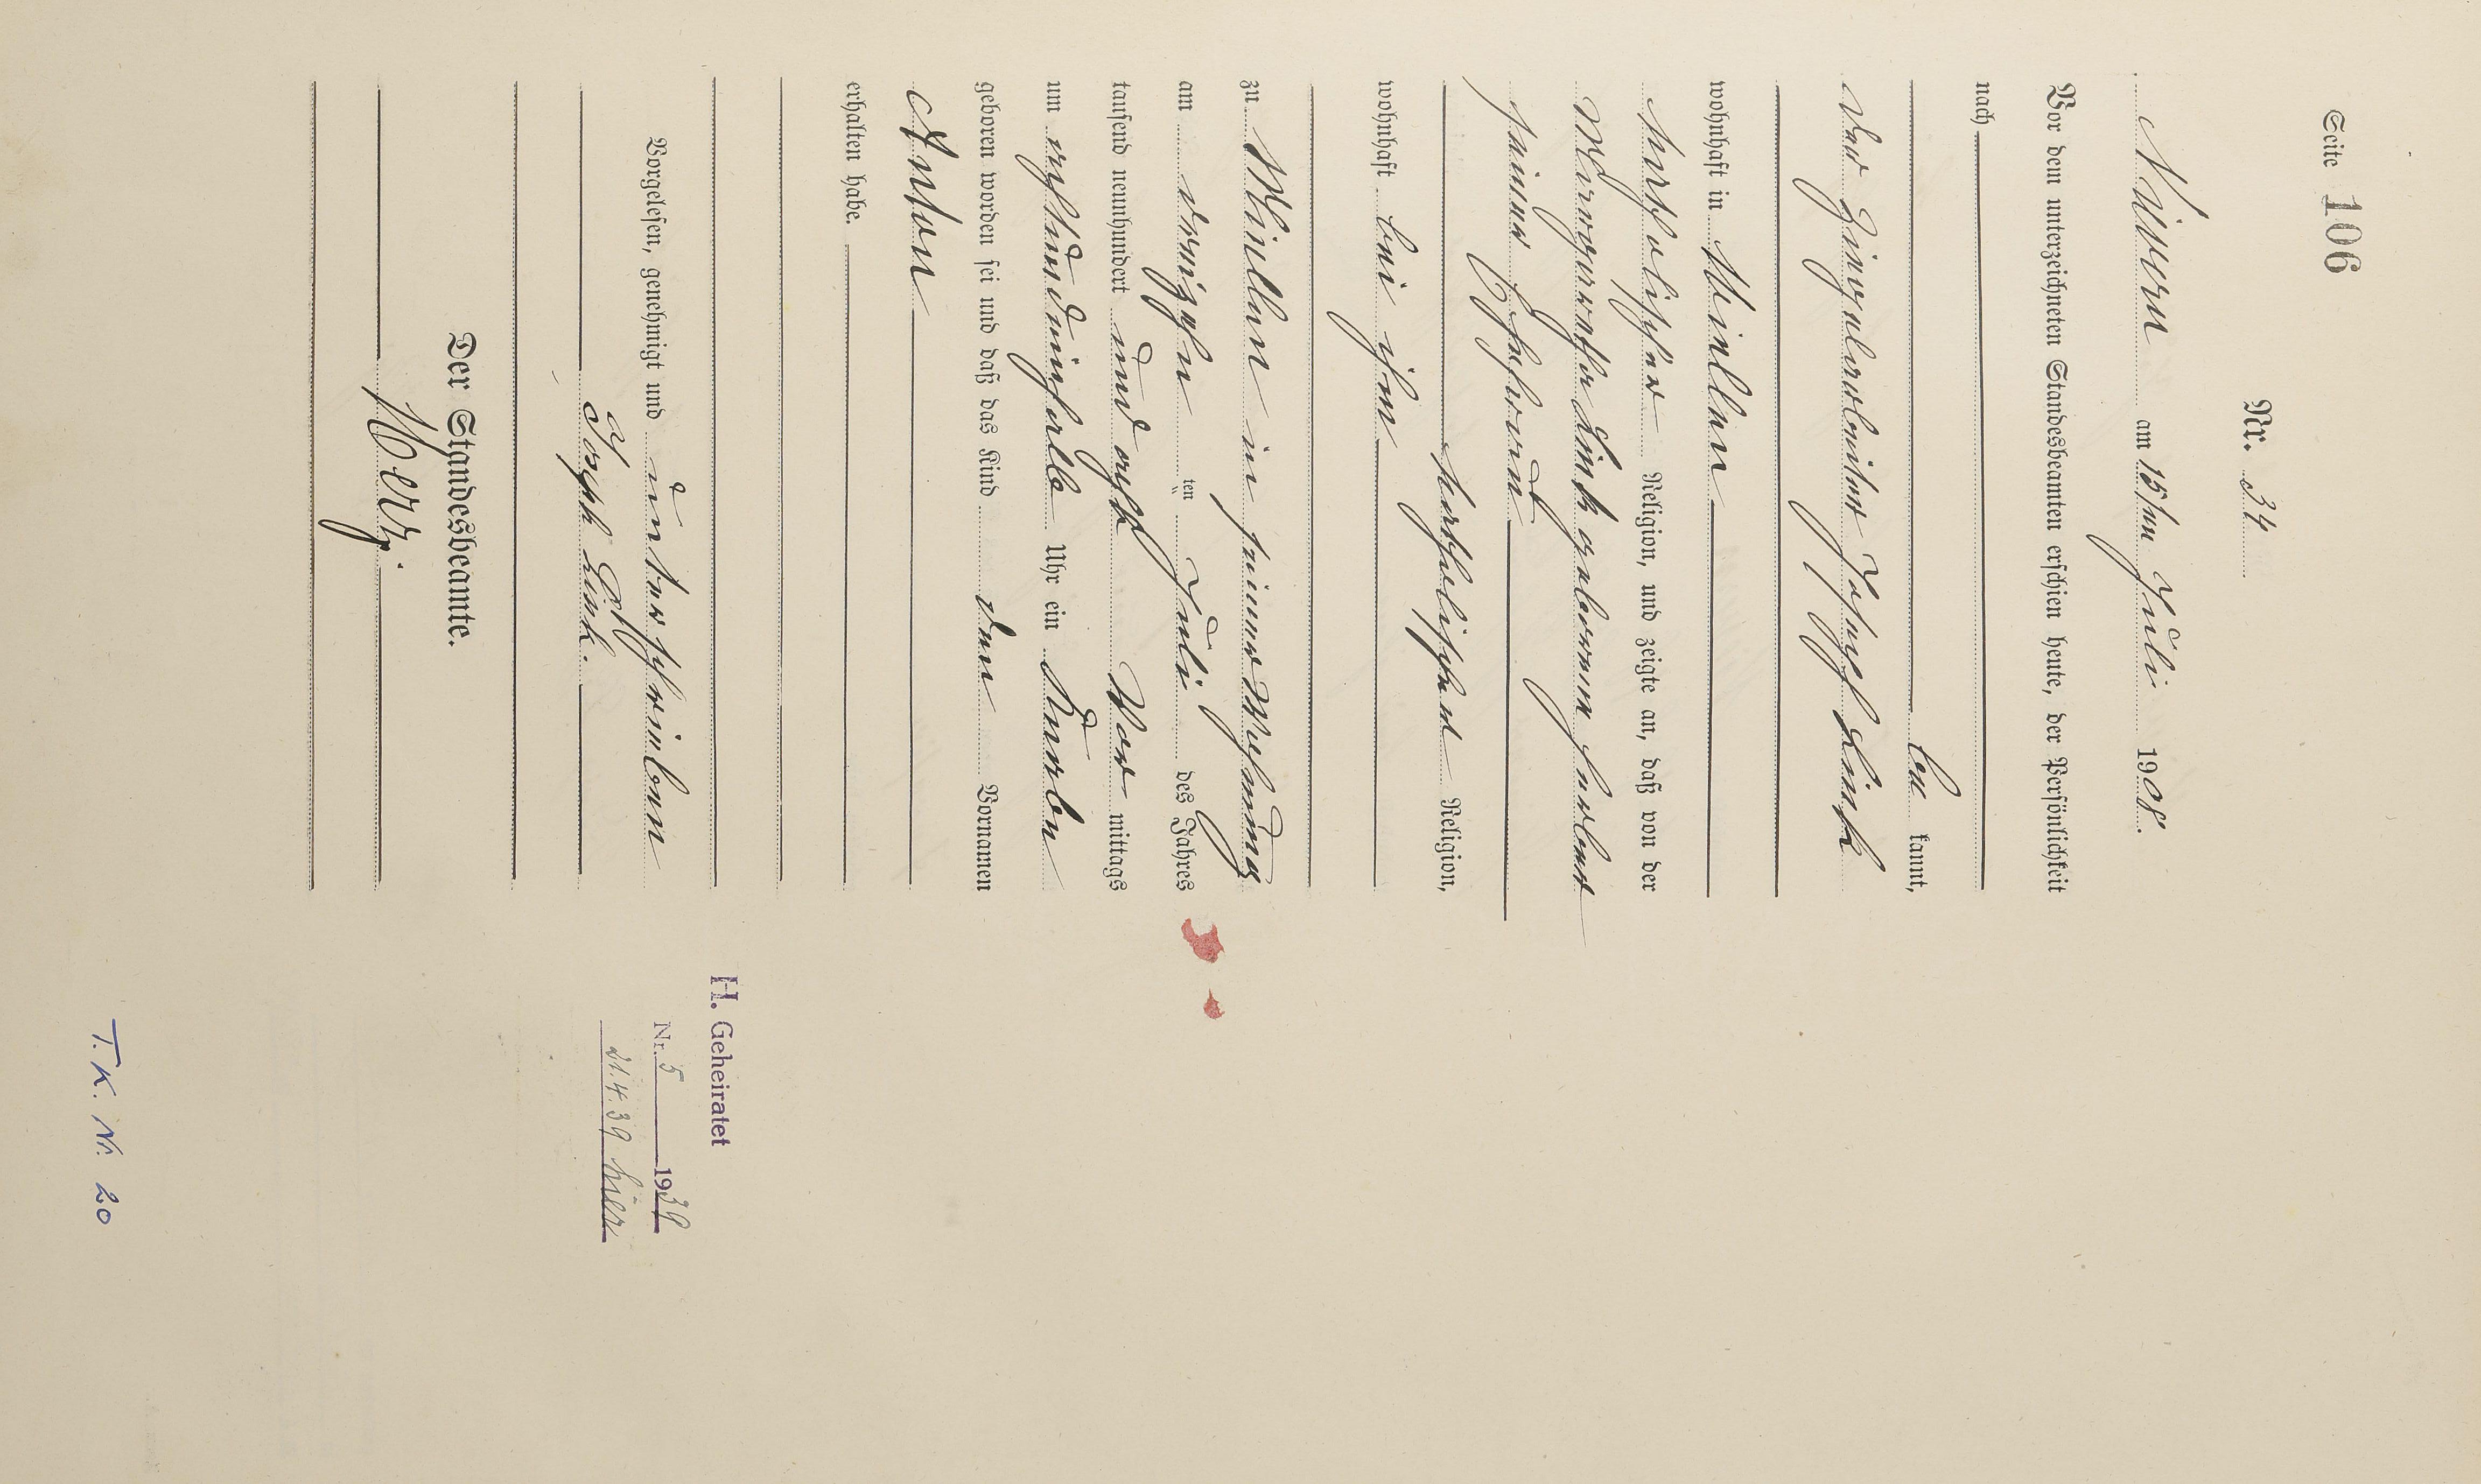 Seite 106
Nr. 34
Nivern am 15ten Juli 1908.
Vor dem unterzeichneten Standesbeamten erschien heute, der Persönlichkeit
nach
be kannt,
der Ziegelarbeiter Joseph Link
wohnhaft in Miellen
katholischer Religion, und zeigte an, daß von der
Margaretha Link geborenen
seiner Ehefrau
katholischer Religion,
wohnhaft bei ihm
zu Miellen in seiner Wohnung
am dreizehn ten Juli des Jahres
tausend neunhundert und acht Vor mittags
um achtundeinhalb Uhr ein Knabe
geboren worden sei und daß das Kind den Vornamen
Anton
erhalten habe.
Vorgelesen, genehmigt und unterschrieben
Joseph Link.
Der Standesbeamte.
H. Geheiratet
Nr. 5 1939
21.4.39 hier
T. K. Nr. 20